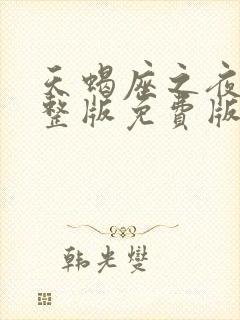 天蝎座之夜
整版免費版
韩光燮